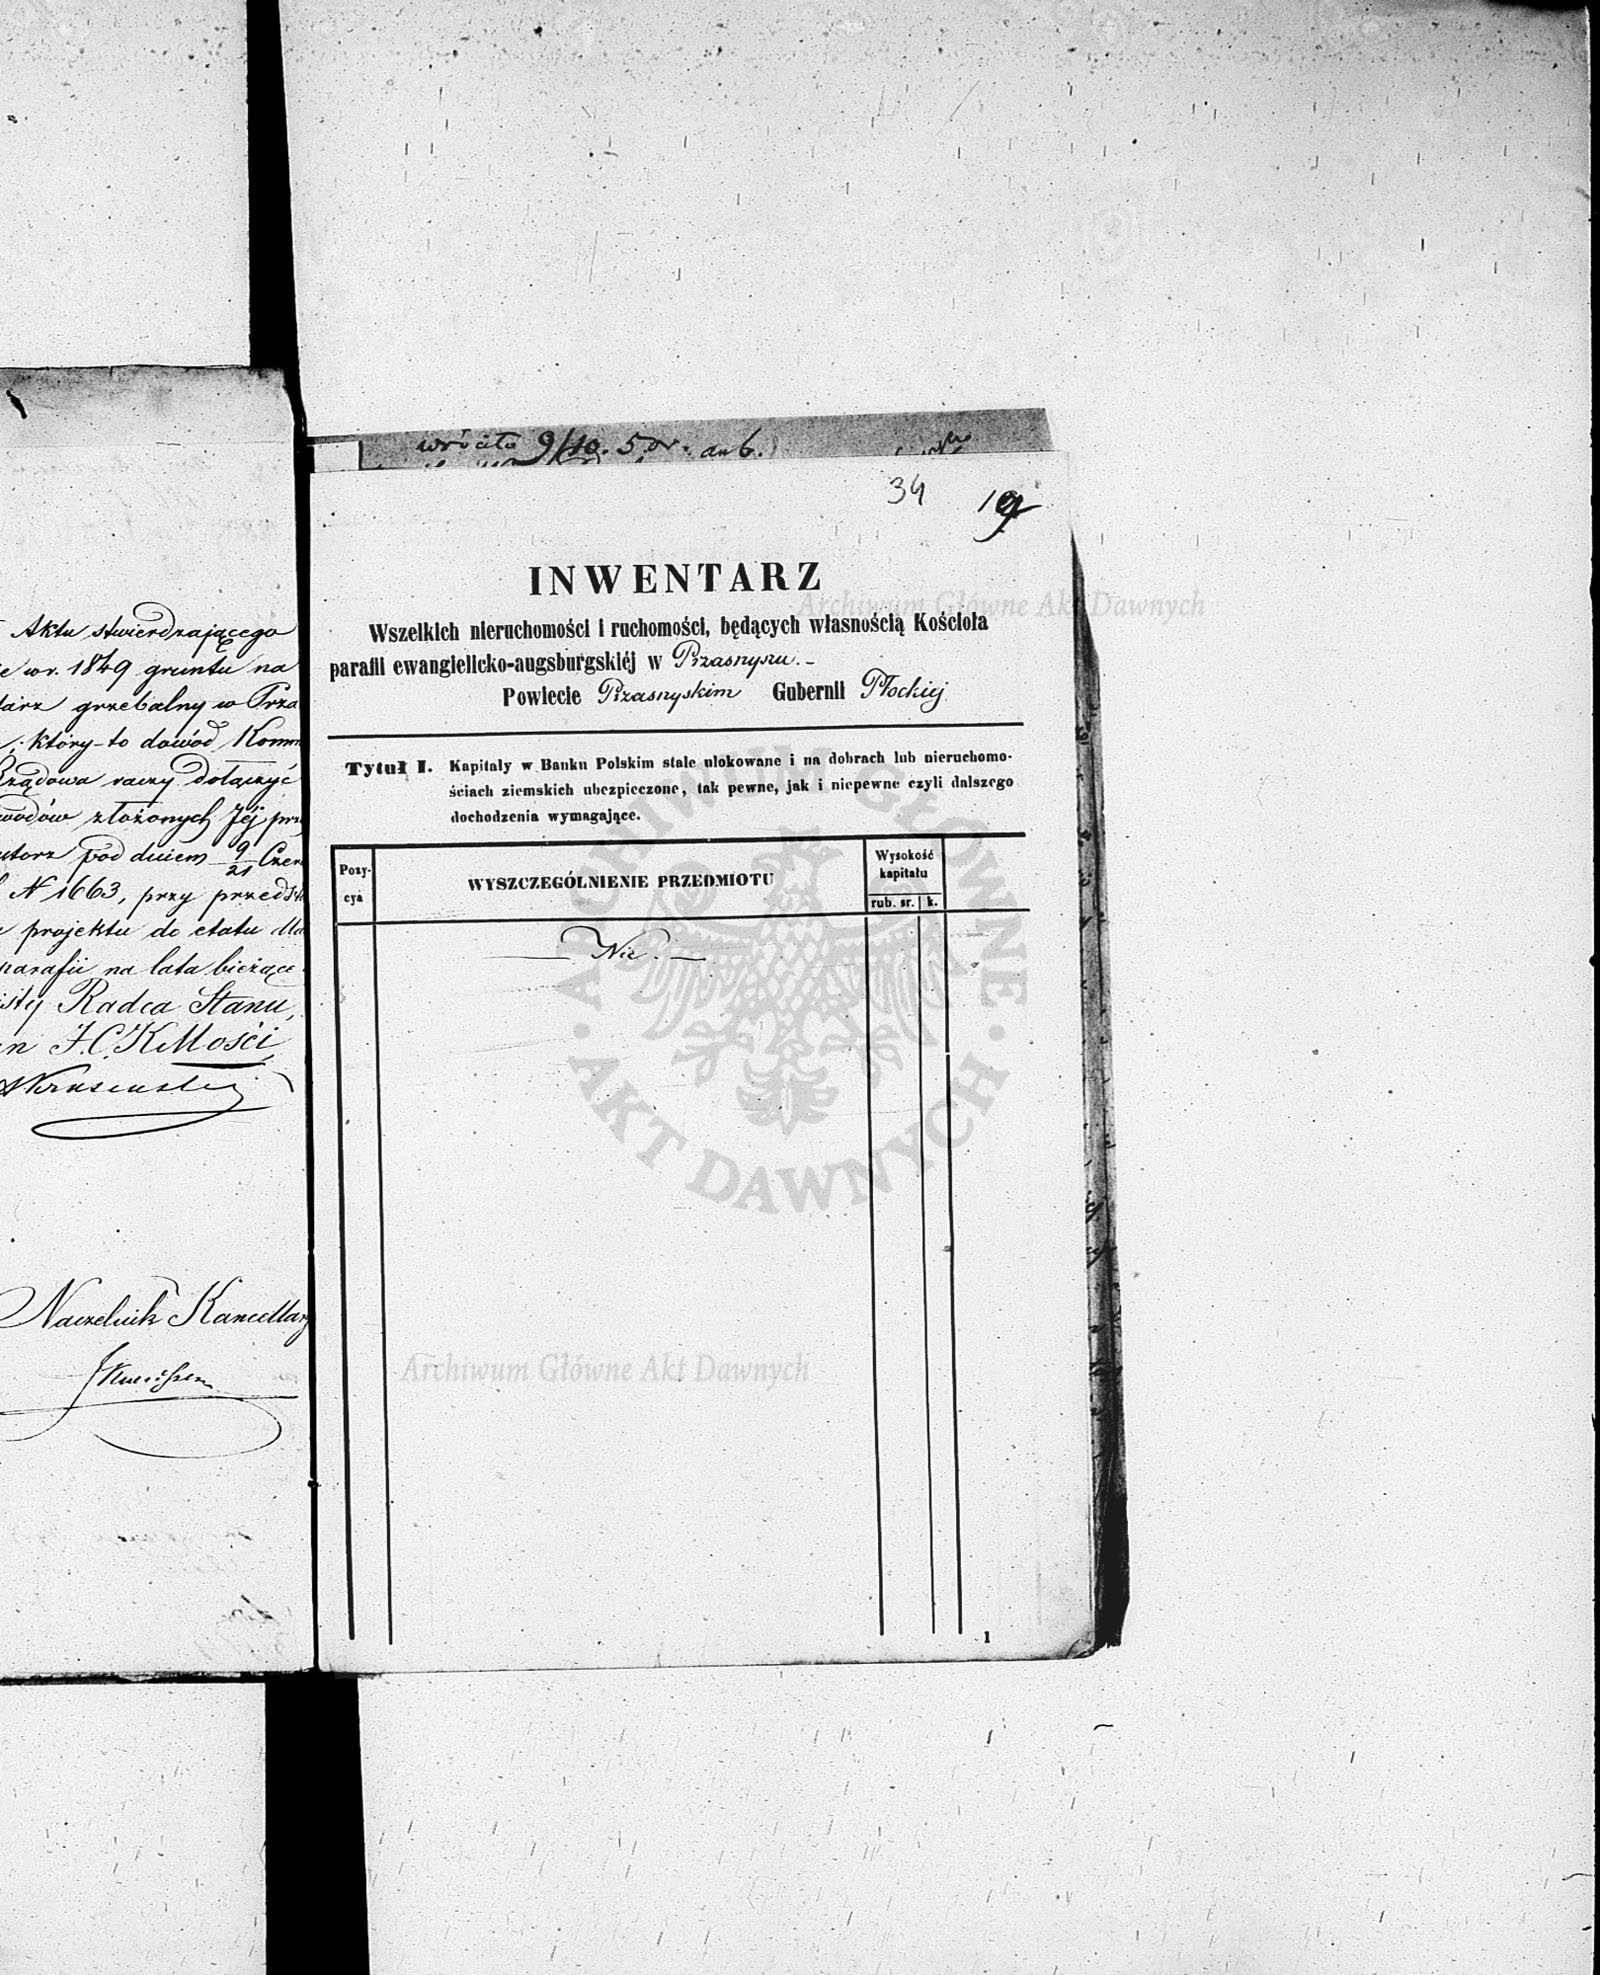 Aktu stwierdzającego
w r. 1849 gruntu na
grzebalny w Prza
który-to dowód Komm
Rządowa raczy dołączyć
złożonych Jéj prz
pod dniem 9/21 Czer
N 1663, przy przedsta
projektu do etatu dla
parafii na lata bieżące
Radca Stanu,
J. C. K. Mości
Naczelnik Kancellary
wróciło 9/10. 5 dr. an 6.
34
19
INWENTARZ
Wszelkich nieruchomości i ruchomości, będących własnością Kościoła
parafii ewangielicko-augsburgskiéj w Przasnyszu.-
Powiecie Przasnyskim Gubernii Płockiej
Tytuł I. Kapitały w Banku Polskim stale ulokowane i na dobrach lub nieruchomo-
ściach ziemskich ubezpieczone, tak pewne, jak i niepewne czyli dalszego
dochodzenia wymagające.
Pozy-
cya
WYSZCZEGÓLNIENIE PRZEDMIOTU
Wysokość
kapitału
rub. sr. k.
Nic.
1
Archiwum Główne Akt Dawnych
ARCHIWUM GŁÓWNE · AKT DAWNYCH ·
Archiwum Główne Akt Dawnych